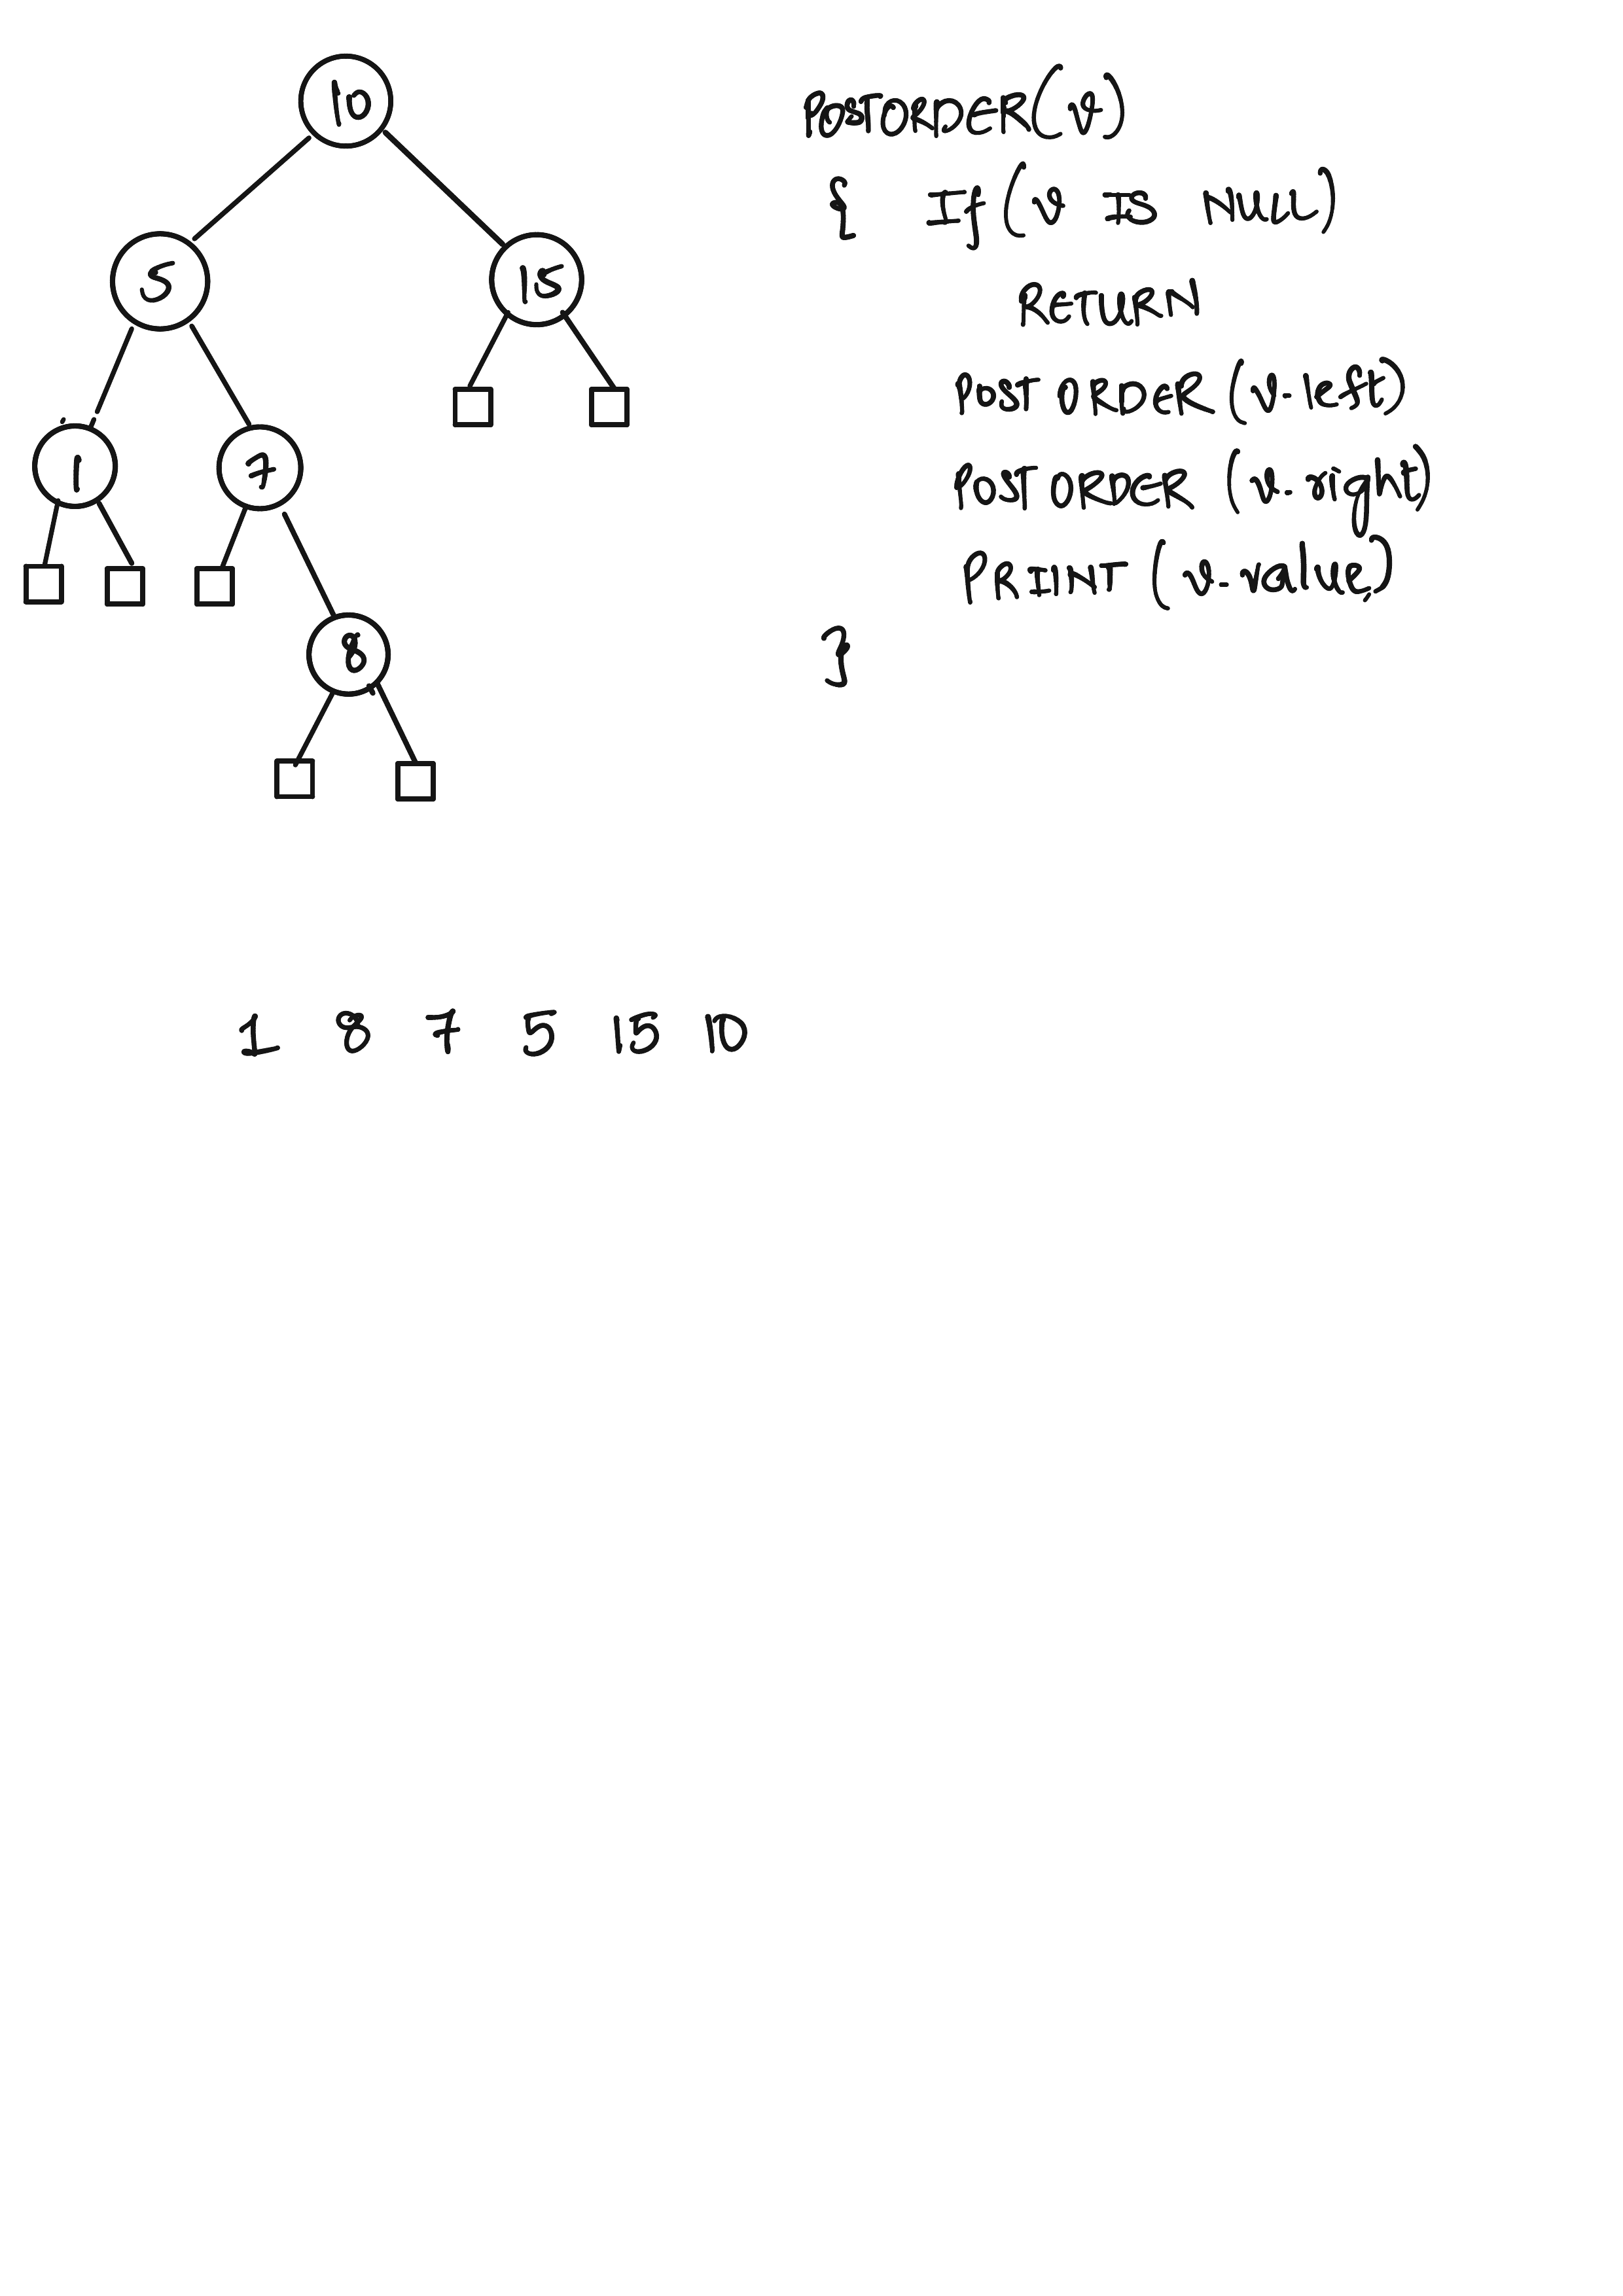 10
5 15
1 7
8
POSTORDER(v)
{ If (v IS NULL)
RETURN
POST ORDER (v.left)
POST ORDER (v.right)
PRINT (v.value)
}
1 8 7 5 15 10